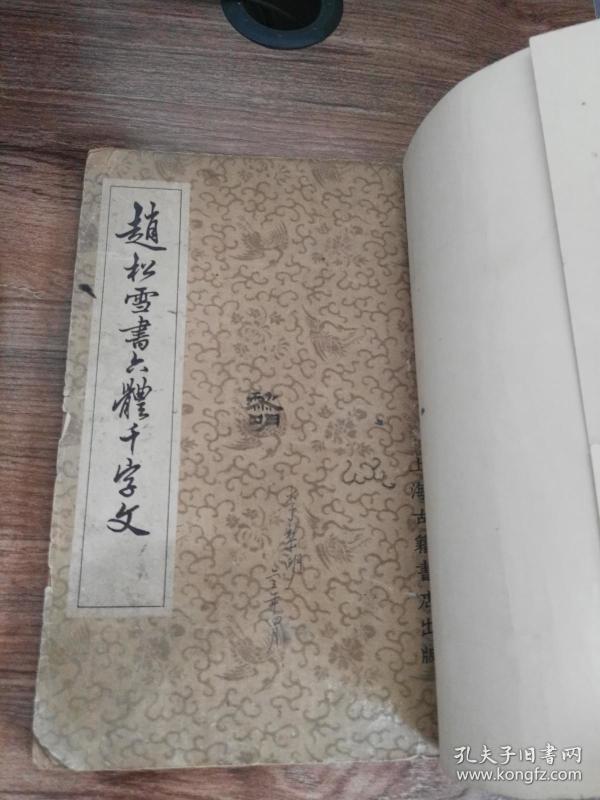 趙松雪書六體千字文
黎明
上海古籍書店出版
孔夫子旧书网
www.kongfz.com